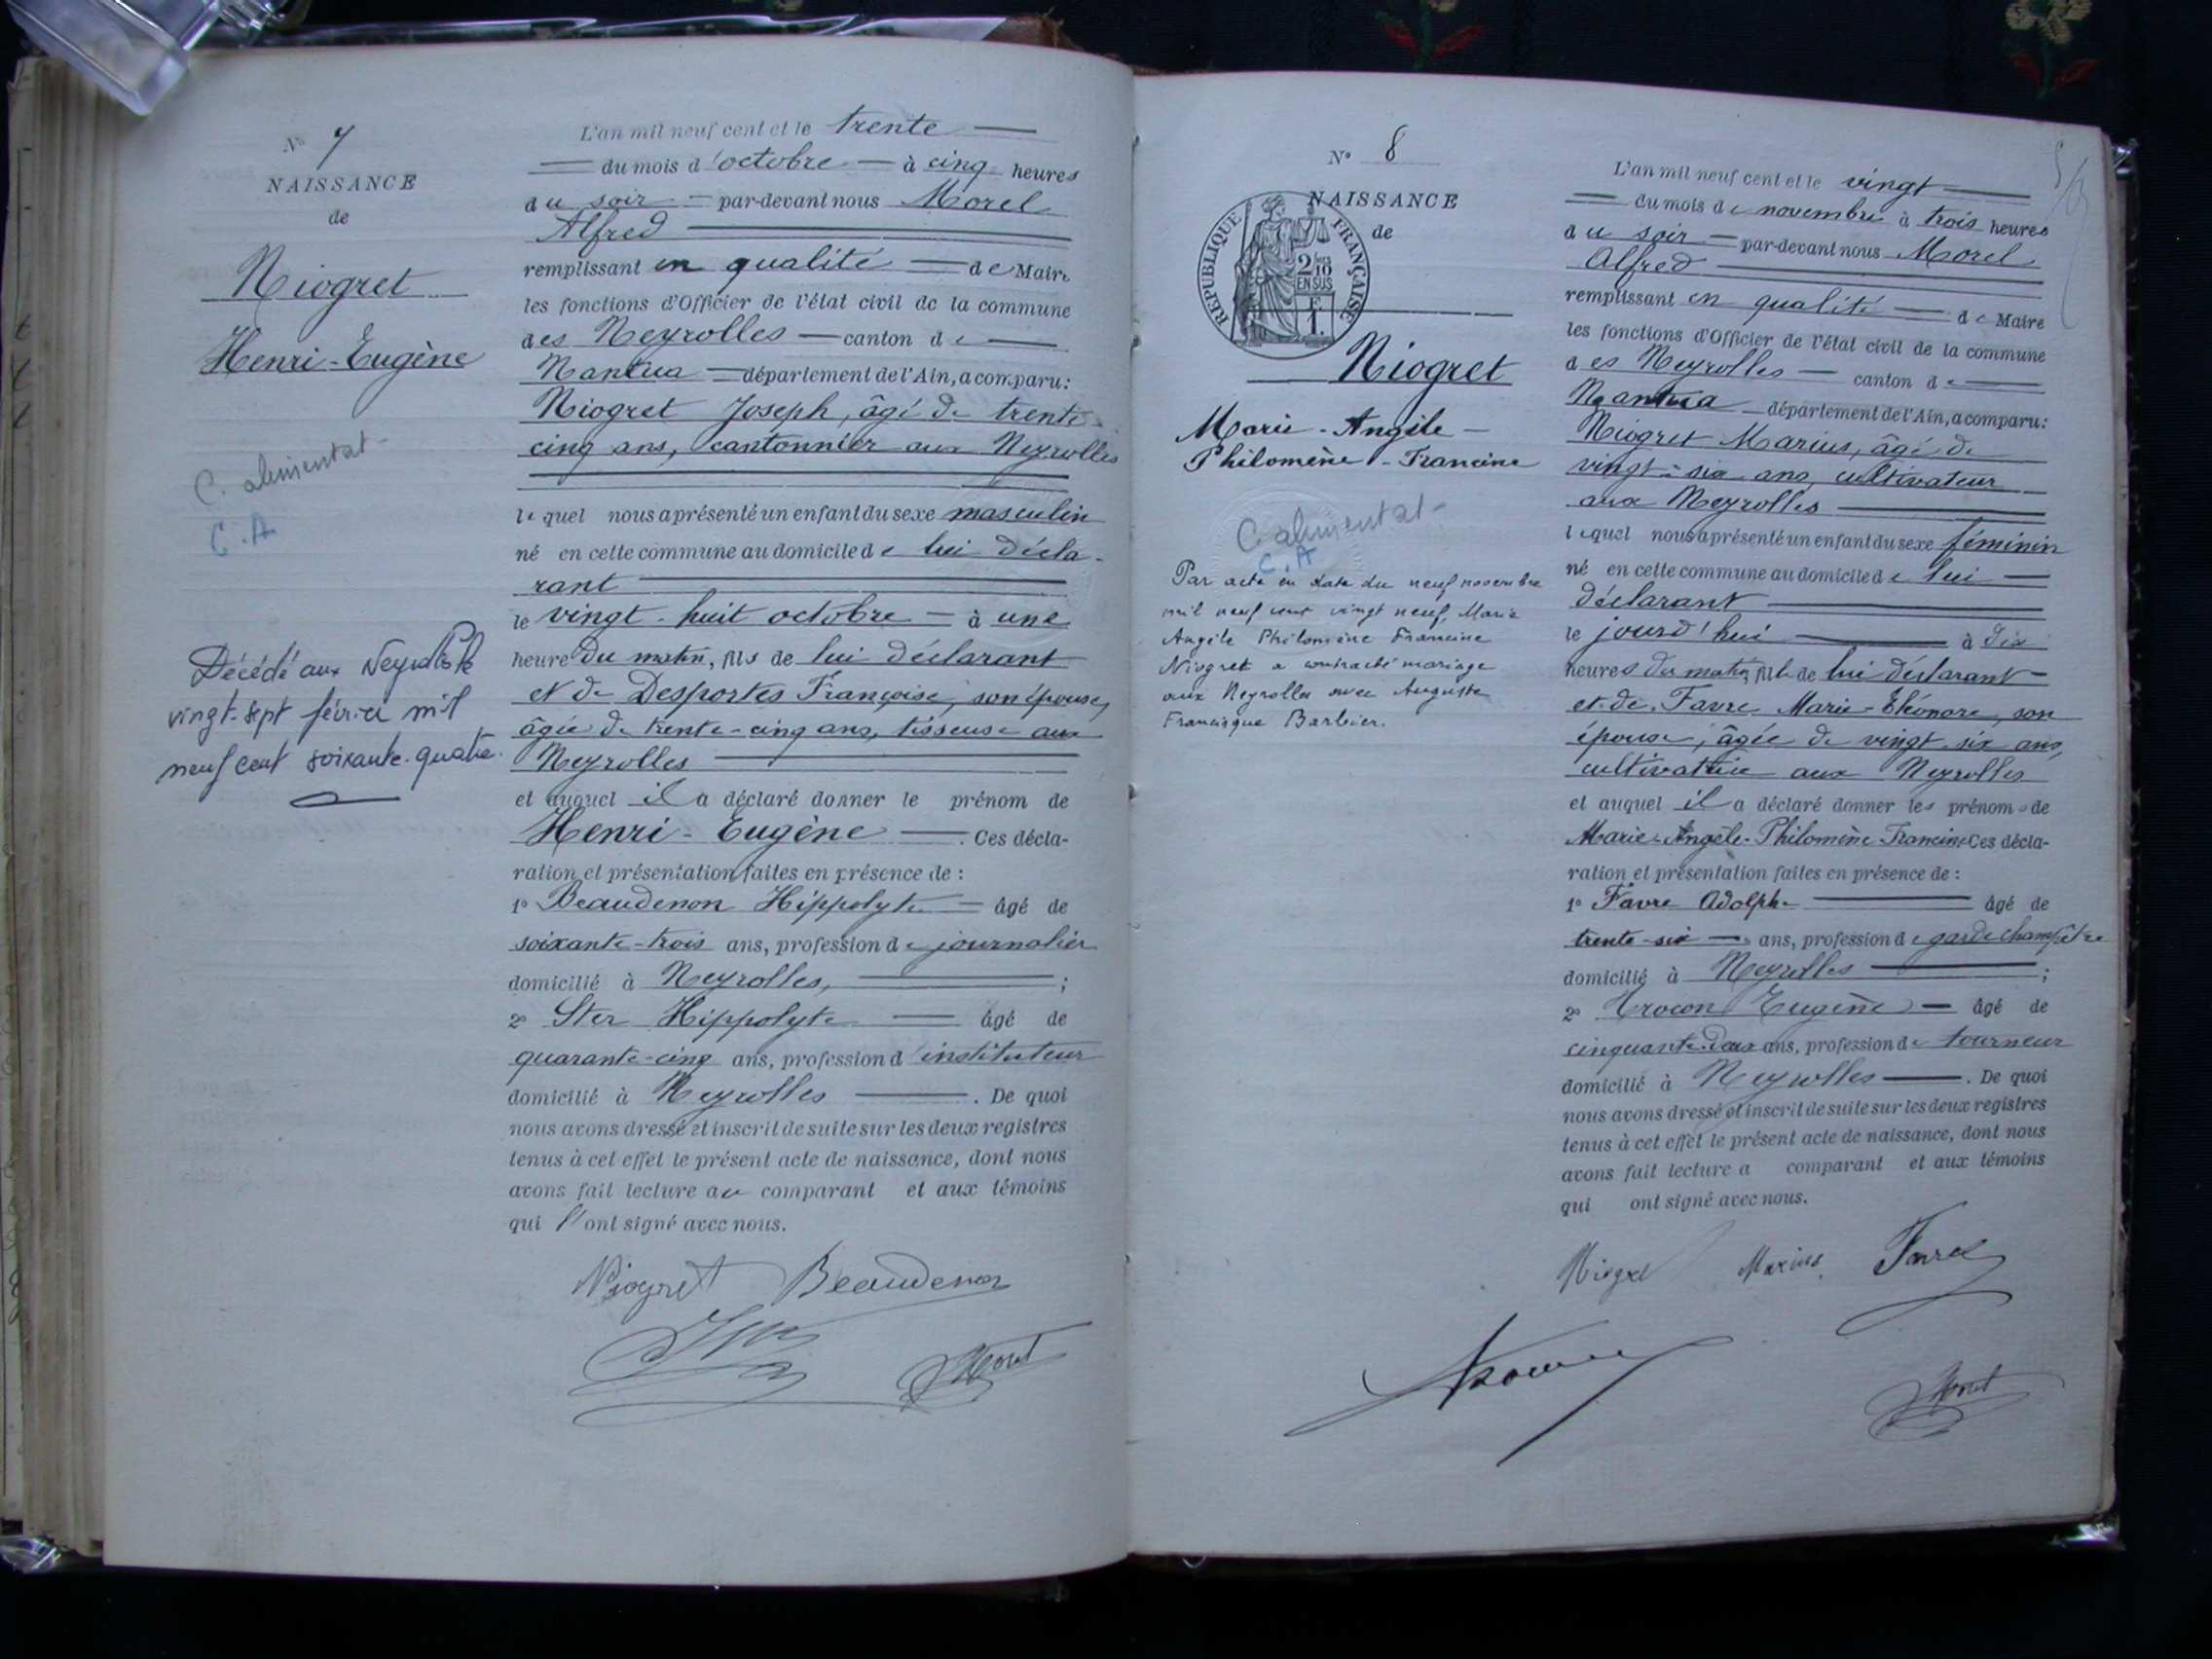 N° 7
NAISSANCE
de
Niogret
Henri-Eugène
C. alimentat-
C.A
Décédé aux Neyrolles le
vingt-sept février mil
neuf cent soixante-quatre.
L'an mil neuf cent et le trente
du mois d'octobre à cinq heures
du soir par-devant nous Morel
Alfred
remplissant en qualité de Maire
les fonctions d'Officier de l'état civil de la commune
des Neyrolles canton de
Nantua département de l'Ain, a comparu:
Niogret Joseph, âgé de trente-
cinq ans, cantonnier aux Neyrolles
lequel nous a présenté un enfant du sexe masculin
né en cette commune au domicile de lui décla-
rant
le vingt-huit octobre à une
heure du matin, fils de lui déclarant
et de Desportes Françoise, son épouse,
âgée de trente-cinq ans, tisseuse aux
Neyrolles
et auquel il a déclaré donner le prénom de
Henri-Eugène. Ces décla-
ration et présentation faites en présence de :
1° Beaudenon Hippolyte âgé de
soixante-trois ans, profession de journalier
domicilié à Neyrolles, ;
2° Ster Hippolyte âgé de
quarante-cinq ans, profession d'instituteur
domicilié à Neyrolles. De quoi
nous avons dressé et inscrit de suite sur les deux registres
tenus à cet effet le présent acte de naissance, dont nous
avons fait lecture au comparant et aux témoins
qui l'ont signé avec nous.
Niogret Beaudenon
Morel
N° 8
NAISSANCE
de
RÉPUBLIQUE FRANÇAISE
2/10
EN SUS
F
1.
Niogret
Marie-Angèle-
Philomène-Francine
C alimentat-
C.A
Par acte en date du neuf novembre
mil neuf cent vingt neuf, Marie
Angèle Philomène Francine
Niogret a contracté mariage
aux Neyrolles avec Auguste
Francisque Barbier.
L'an mil neuf cent et le vingt
du mois de novembre à trois heures
du soir par-devant nous Morel
Alfred
remplissant en qualité de Maire
les fonctions d'Officier de l'état civil de la commune
des Neyrolles canton de
Nantua département de l'Ain, a comparu:
Niogret Marius, âgé de
vingt-six ans, cultivateur
aux Neyrolles
lequel nous a présenté un enfant du sexe féminin
né en cette commune au domicile de lui
déclarant
le jourd'hui à dix
heures du matin, fille de lui déclarant
et de Favre Marie-Eléonore, son
épouse, âgée de vingt-six ans,
cultivatrice aux Neyrolles
et auquel il a déclaré donner les prénoms de
Marie-Angèle-Philomène-Francine Ces décla-
ration et présentation faites en présence de :
1° Favre Adolphe âgé de
trente-six ans, profession de garde champêtre
domicilié à Neyrolles ;
2° Trocon Eugène âgé de
cinquante-deux ans, profession de tourneur
domicilié à Neyrolles. De quoi
nous avons dressé et inscrit de suite sur les deux registres
tenus à cet effet le présent acte de naissance, dont nous
avons fait lecture a comparant et aux témoins
qui ont signé avec nous.
Niogret Marius Favre
Morel